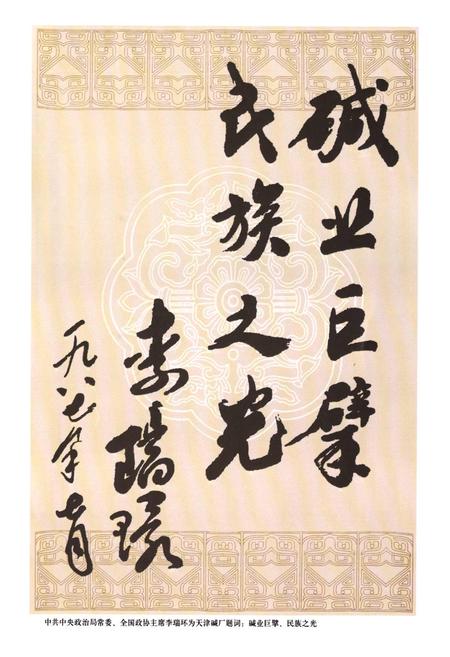 碱业巨擘
民族之光
李瑞环
一九八七年十月
中共中央政治局常委、全国政协主席李瑞环为天津碱厂题词：碱业巨擘、民族之光